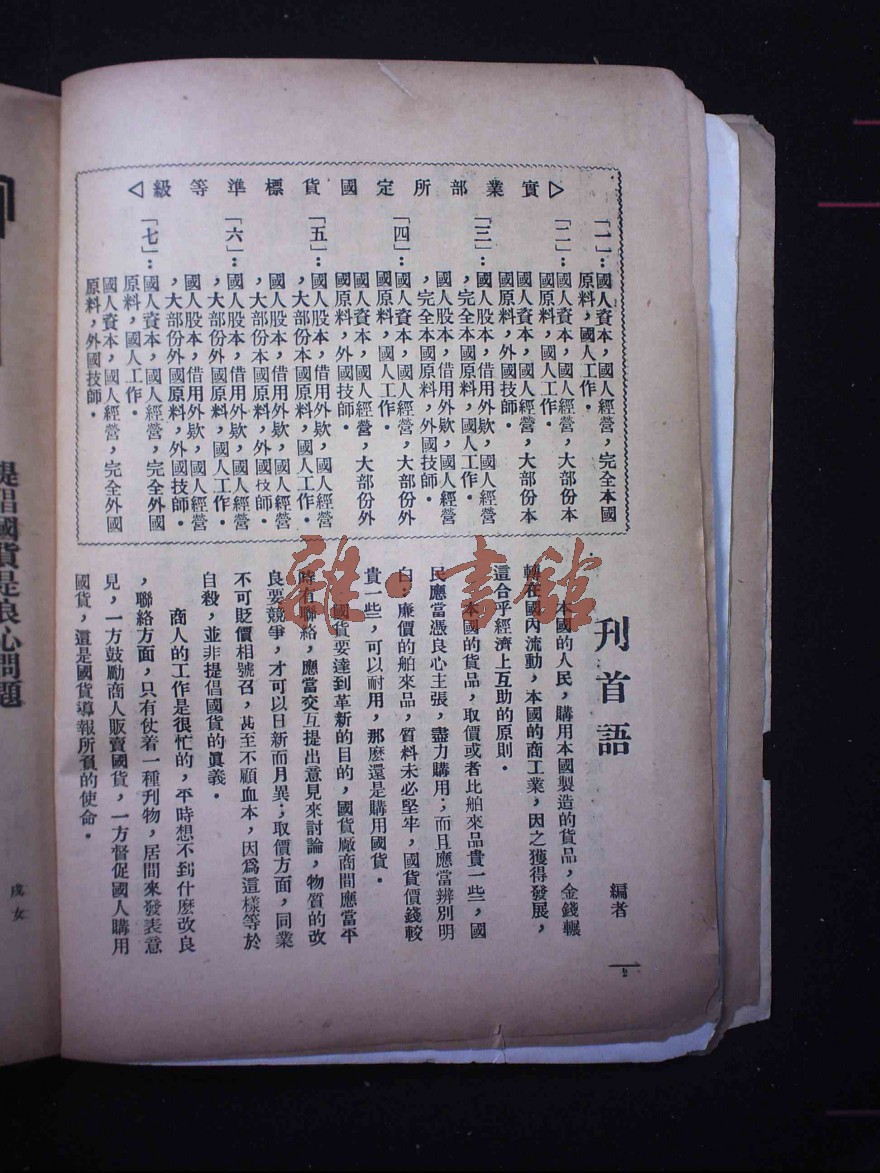 ◁級等準標貨國定所部業實▷
「一」：國人資本，國人經營，完全本國
原料，國人工作．
「二」：國人資本，國人經營，大部份本
國原料，國人工作．
國人資本，國人經營，大部份本
國原料，外國技師．
「三」：國人股本，借用外欵，國人經營
，完全本國原料，國人工作．
國人股本，借用外欵，國人經營
，完全本國原料，外國技師．
「四」：國人資本，國人經營，大部份外
國原料，國人工作．
國人資本，國人經營，大部份外
國原料，外國技師．
「五」：國人股本，借用外欵，國人經營
，大部份本國原料，國人工作．
國人股本，借用外欵，國人經營
，大部份本國原料，外國技師．
「六」：國人股本，借用外欵，國人經營
，大部份外國原料，國人工作．
國人股本，借用外欵，國人經營
，大部份外國原料，外國技師．
「七」：國人資本，國人經營，完全外國
原料，國人工作．
國人資本，國人經營，完全外國
原料，外國技師．
刊首語
編者
本國的人民，購用本國製造的貨品，金錢輾
轉在國內流動，本國的商工業，因之獲得發展，
這合乎經濟上互助的原則．
本國的貨品，取價或者比舶來品貴一些，國
民應當憑良心主張，盡力購用；而且應當辨別明
白：廉價的舶來品，質料未必堅牢，國貨價錢較
貴一些，可以耐用，那麽還是購用國貨．
國貨要達到革新的目的，國貨廠商間應當平
時有聯絡，應當交互提出意見來討論，物質的改
良要競爭，才可以日新而月異；取價方面，同業
不可貶價相號召，甚至不顧血本，因爲這樣等於
自殺，並非提倡國貨的眞義．
商人的工作是很忙的，平時想不到什麽改良
，聯絡方面，只有仗着一種刊物，居間來發表意
見，一方鼓勵商人販賣國貨，一方督促國人購用
國貨，這是國貨導報所負的使命．
提倡國貨是良心問題
戌女
雜·書館